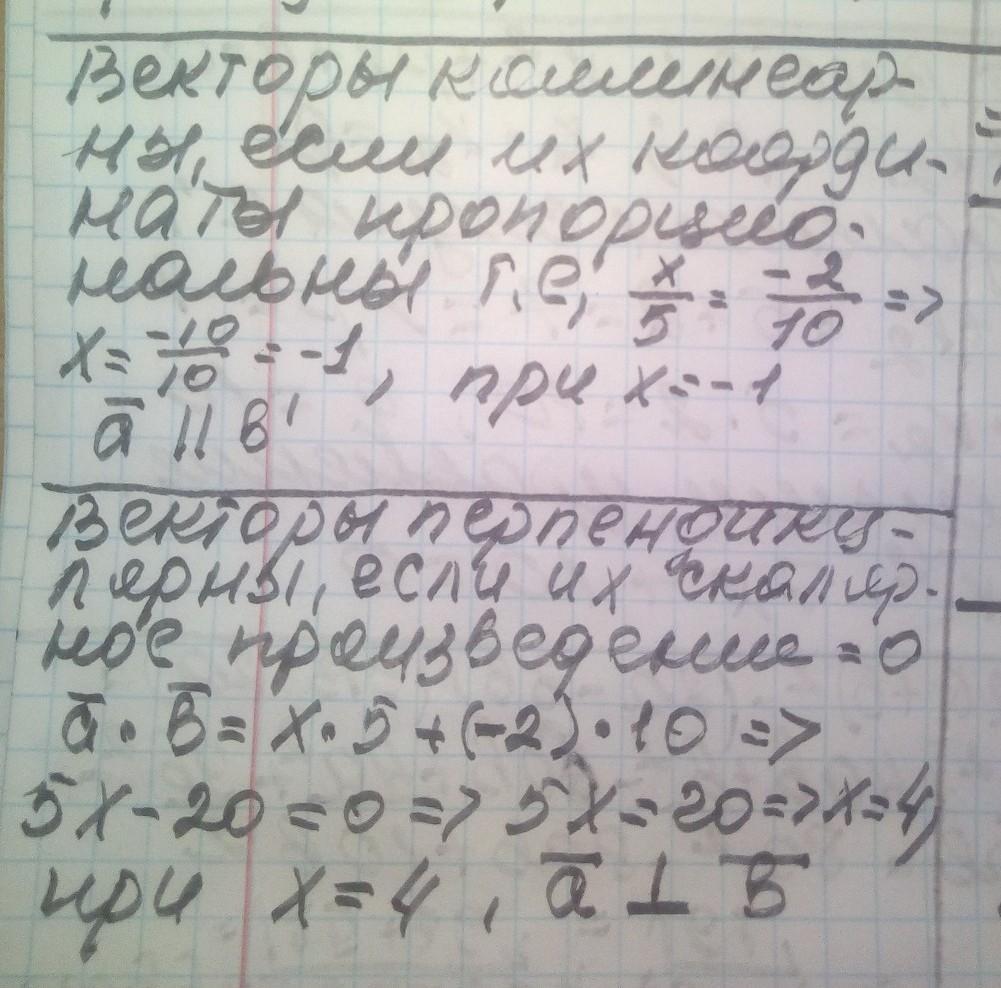 Векторы коллинеар-
ны, если их коорди-
наты пропорцио-
нальны т.е, x/5 = -2/10 =>
x = -10/10 = -1, при x = -1
a̅ || в'
Векторы перпендику-
лярны, если их скаляр-
ное произведение = 0
a̅ · в̅ = x · 5 + (-2) · 10 =>
5x - 20 = 0 => 5x = 20 => x = 4,
при x = 4, a̅ ⊥ в̅